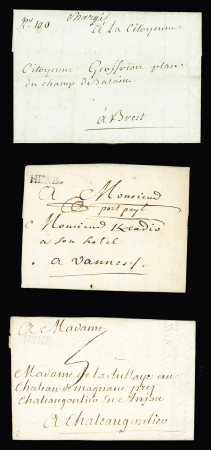 Chargé
No 100
à La Citoyenne
Citoyenne Geoffrion place
du champ de Bataille
à Brest
HENB.
A Monsieur
port payé
Monsieur Kercadio
a son hotel
a vannes
A Madame
HENB
5
Madame de la tullaye au
Chateau de magnane preq
Chateaugontier en Anjou
A Chateaugontier